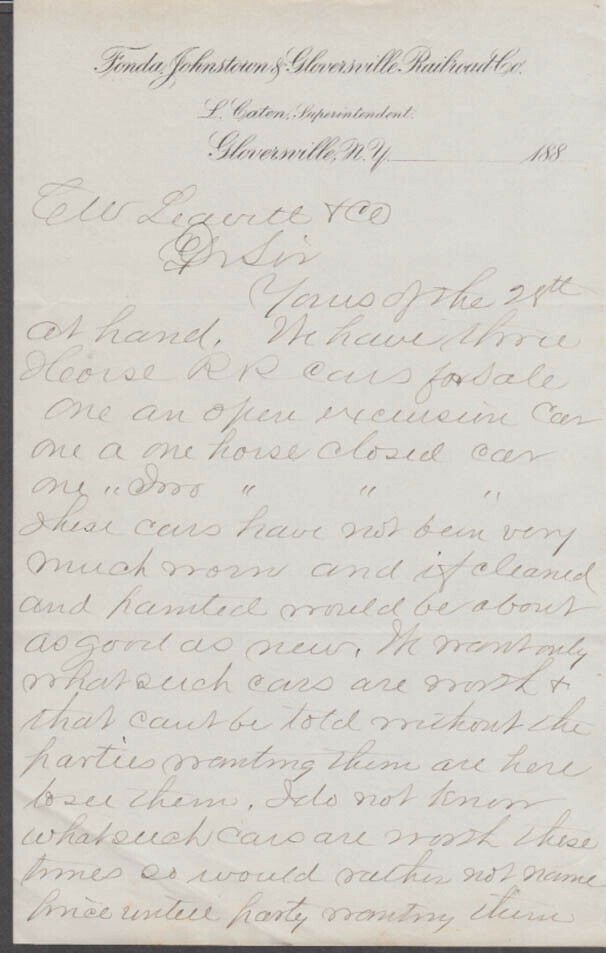 Fonda, Johnstown & Gloversville Railroad Co.
L. Caten, Superintendent.
Gloversville, N.Y. 188
C W Leavitt & Co
Dr Sir
Yours of the 28th
at hand. We have three
Horse RR cars for sale
One an open excursion Car
one a one horse closed car
one " Two " " "
These cars have not been very
much worn and if cleaned
and painted would be about
as good as new. We want only
what such cars are worth &
that cant be told without the
parties wanting them are here
to see them. I do not know
what such cars are worth these
times so would rather not name
price untill party wanting them